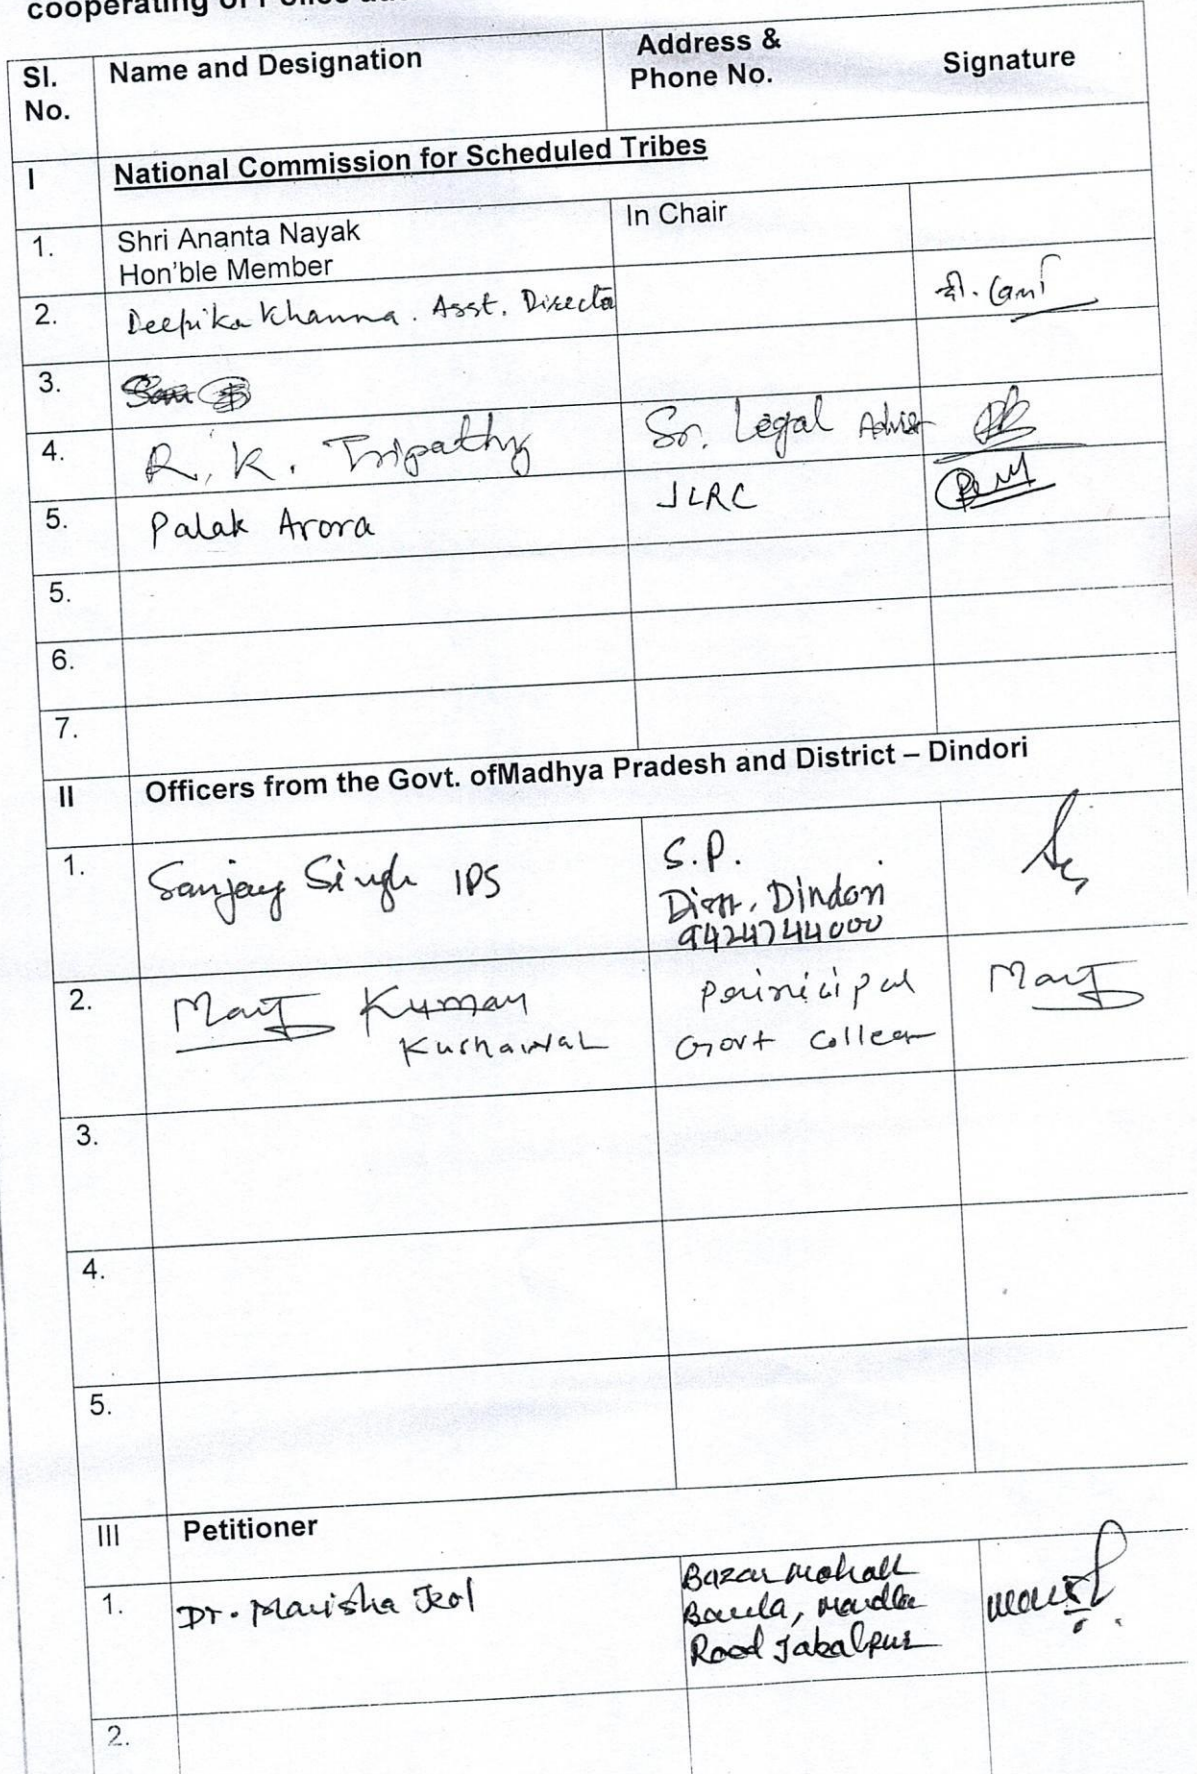 cooperating of Police
Sl. No. Name and Designation Address & Phone No. Signature
I National Commission for Scheduled Tribes
1. Shri Ananta Nayak In Chair
Hon'ble Member
2. Deepika Khanna. Asst. Director
3.
4. R. K. Tripathy Sr. Legal Adviser
5. Palak Arora JLRC
5.
6.
7.
II Officers from the Govt. ofMadhya Pradesh and District – Dindori
1. Sanjay Singh IPS S.P.
Distt. Dindori
9424744000
2. Kumar Perinicipal
Kushawah Govt College
3.
4.
5.
III Petitioner
1. Dr. Manisha Bazar
Mandla
Road Jabalpur
2.